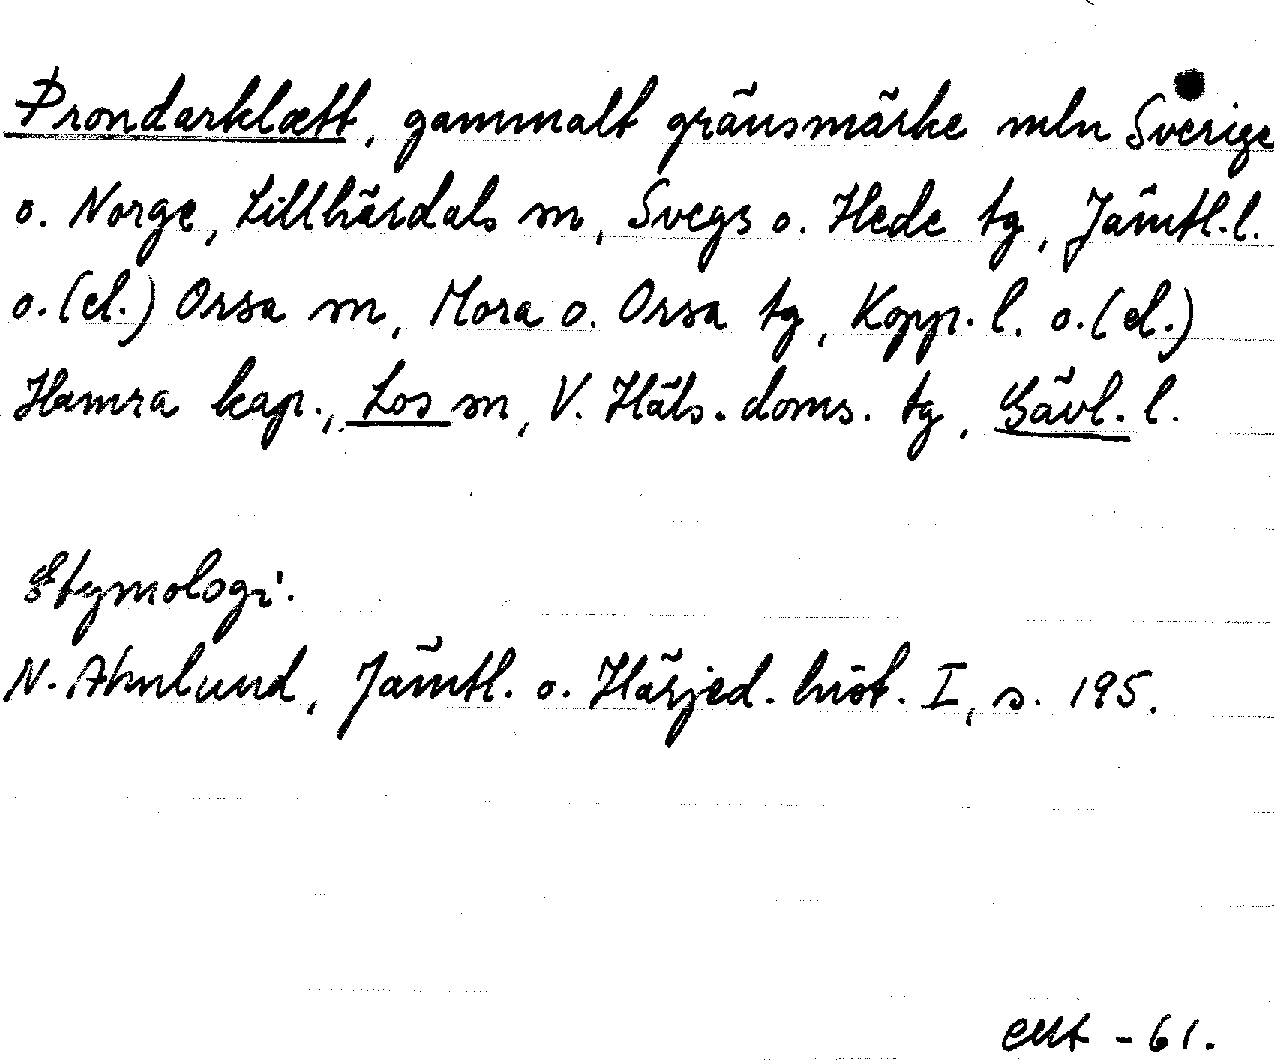 Þrondarklætt, gammalt gränsmärke mln Sverige
o. Norge, Lillhärdals sn, Svegs o. Hede tg, Jämtl. l.
o. (el.) Orsa sn, Mora o. Orsa tg, Kopp. l. o. (el.)
Hamra kap., Los sn, V. Häls. doms. tg, Gävl. l.
Etymologi.
N. Ahnlund, Jämtl. o. Härjed. hist. I, s. 195.
-61.